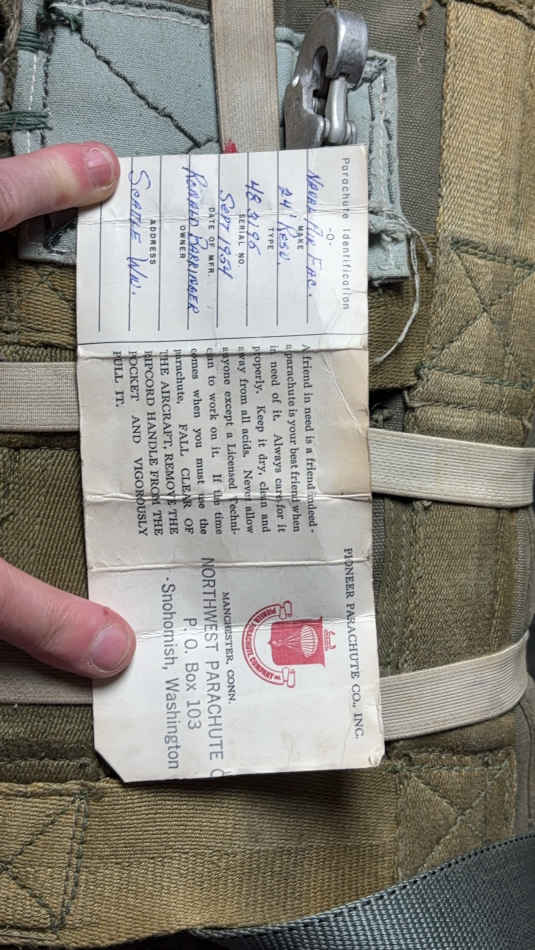 Parachute Identification
-O-
NAVAL AIR FAC.
MAKE
24' RESV.
TYPE
SERIAL NO.
SEPT 1954
DATE OF MFR.
RONALD BARRINGER
OWNER
ADDRESS
SEATTLE WN.
A friend in need is a friend indeed -
a parachute is your best friend when
in need of it. Always care for it
properly. Keep it dry, clean and
away from all acids. Never allow
anyone except a Licensed Techni-
cian to work on it. If the time
comes when you must use the
parachute, FALL CLEAR OF
THE AIRCRAFT, REMOVE THE
RIPCORD HANDLE FROM THE
POCKET AND VIGOROUSLY
PULL IT.
PIONEER PARACHUTE CO., INC.
PIONEER PARACHUTE COMPANY
MANCHESTER, CONN.
NORTHWEST PARACHUTE
P. O. Box 103
Snohomish, Washington